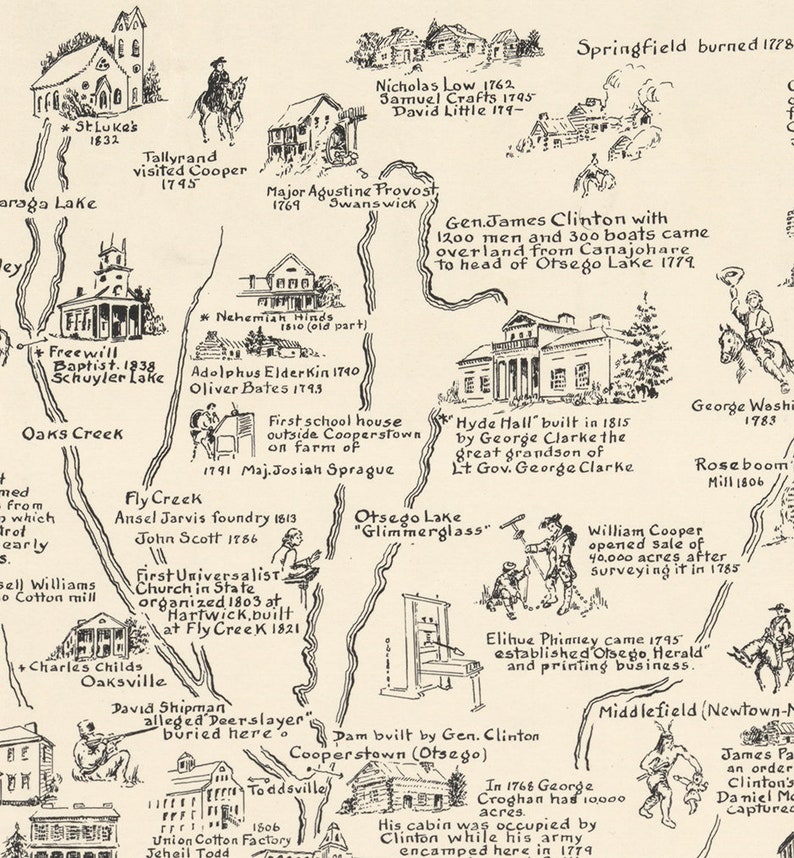 * St Luke's
1832
Tallyrand
visited Cooper
1795
Nicholas Low 1762
Samuel Crafts 1795
David Little 179-
Springfield burned 1778
Major Agustine Provost
1769 Swanswick
araga Lake
Gen. James Clinton with
1200 men and 300 boats came
overland from Canajohare
to head of Otsego Lake 1779.
ley
* Nehemiah Hinds
1810 (old part)
* Freewill
Baptist. 1838
Schuyler Lake
Adolphus Elderkin 1790
Oliver Bates 1793
George Washi
1783
Oaks Creek
First school house
outside Cooperstown
on farm of
1791 Maj. Josiah Sprague
*"Hyde Hall" built in 1815
by George Clarke the
great grandson of
Lt Gov. George Clarke
Roseboom
Mill 1806
med
from
which
rot
early
s.
Fly Creek
Ansel Jarvis foundry 1813
John Scott 1786
Otsego Lake
"Glimmerglass"
William Cooper
opened sale of
40,000 acres after
surveying it in 1785
sell Williams
o Cotton mill
First Universalist
Church in State
organized 1803 at
Hartwick, built
at Fly Creek 1821
Elihue Phinney came 1795
established "Otsego Herald"
and printing business.
* Charles Childs
Oaksville
David Shipman
alleged "Deerslayer"
buried here
Dam built by Gen. Clinton
Cooperstown (Otsego)
Middlefield (Newtown-M
Toddsville
In 1768 George
Croghan had 10,000
acres.
His cabin was occupied by
Clinton while his army
encamped here in 1779
James Pa
an order
Clinton's
Daniel Mc
captured
1806
Union Cotton Factory
Jeheil Todd